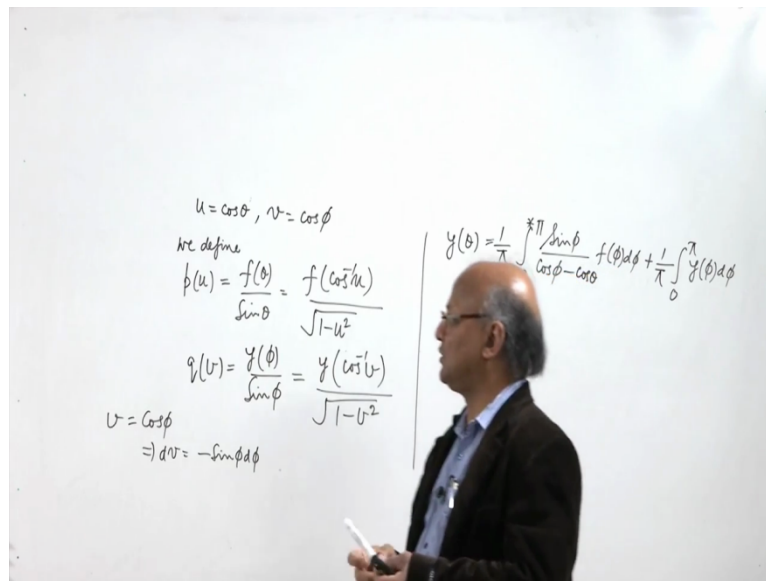 u = cosθ, v = cosϕ
we define
p(u) = f(θ)/Sinθ = f(cos⁻¹u)/√(1-u²)
q(v) = y(ϕ)/Sinϕ = y(cos⁻¹v)/√(1-v²)
v = Cosϕ
⇒ dv = -Sinϕdϕ
y(θ) = 1/π ∫^π Sinϕ/(cosϕ-cosθ) f(ϕ)dϕ + 1/π ∫₀^π y(ϕ)dϕ